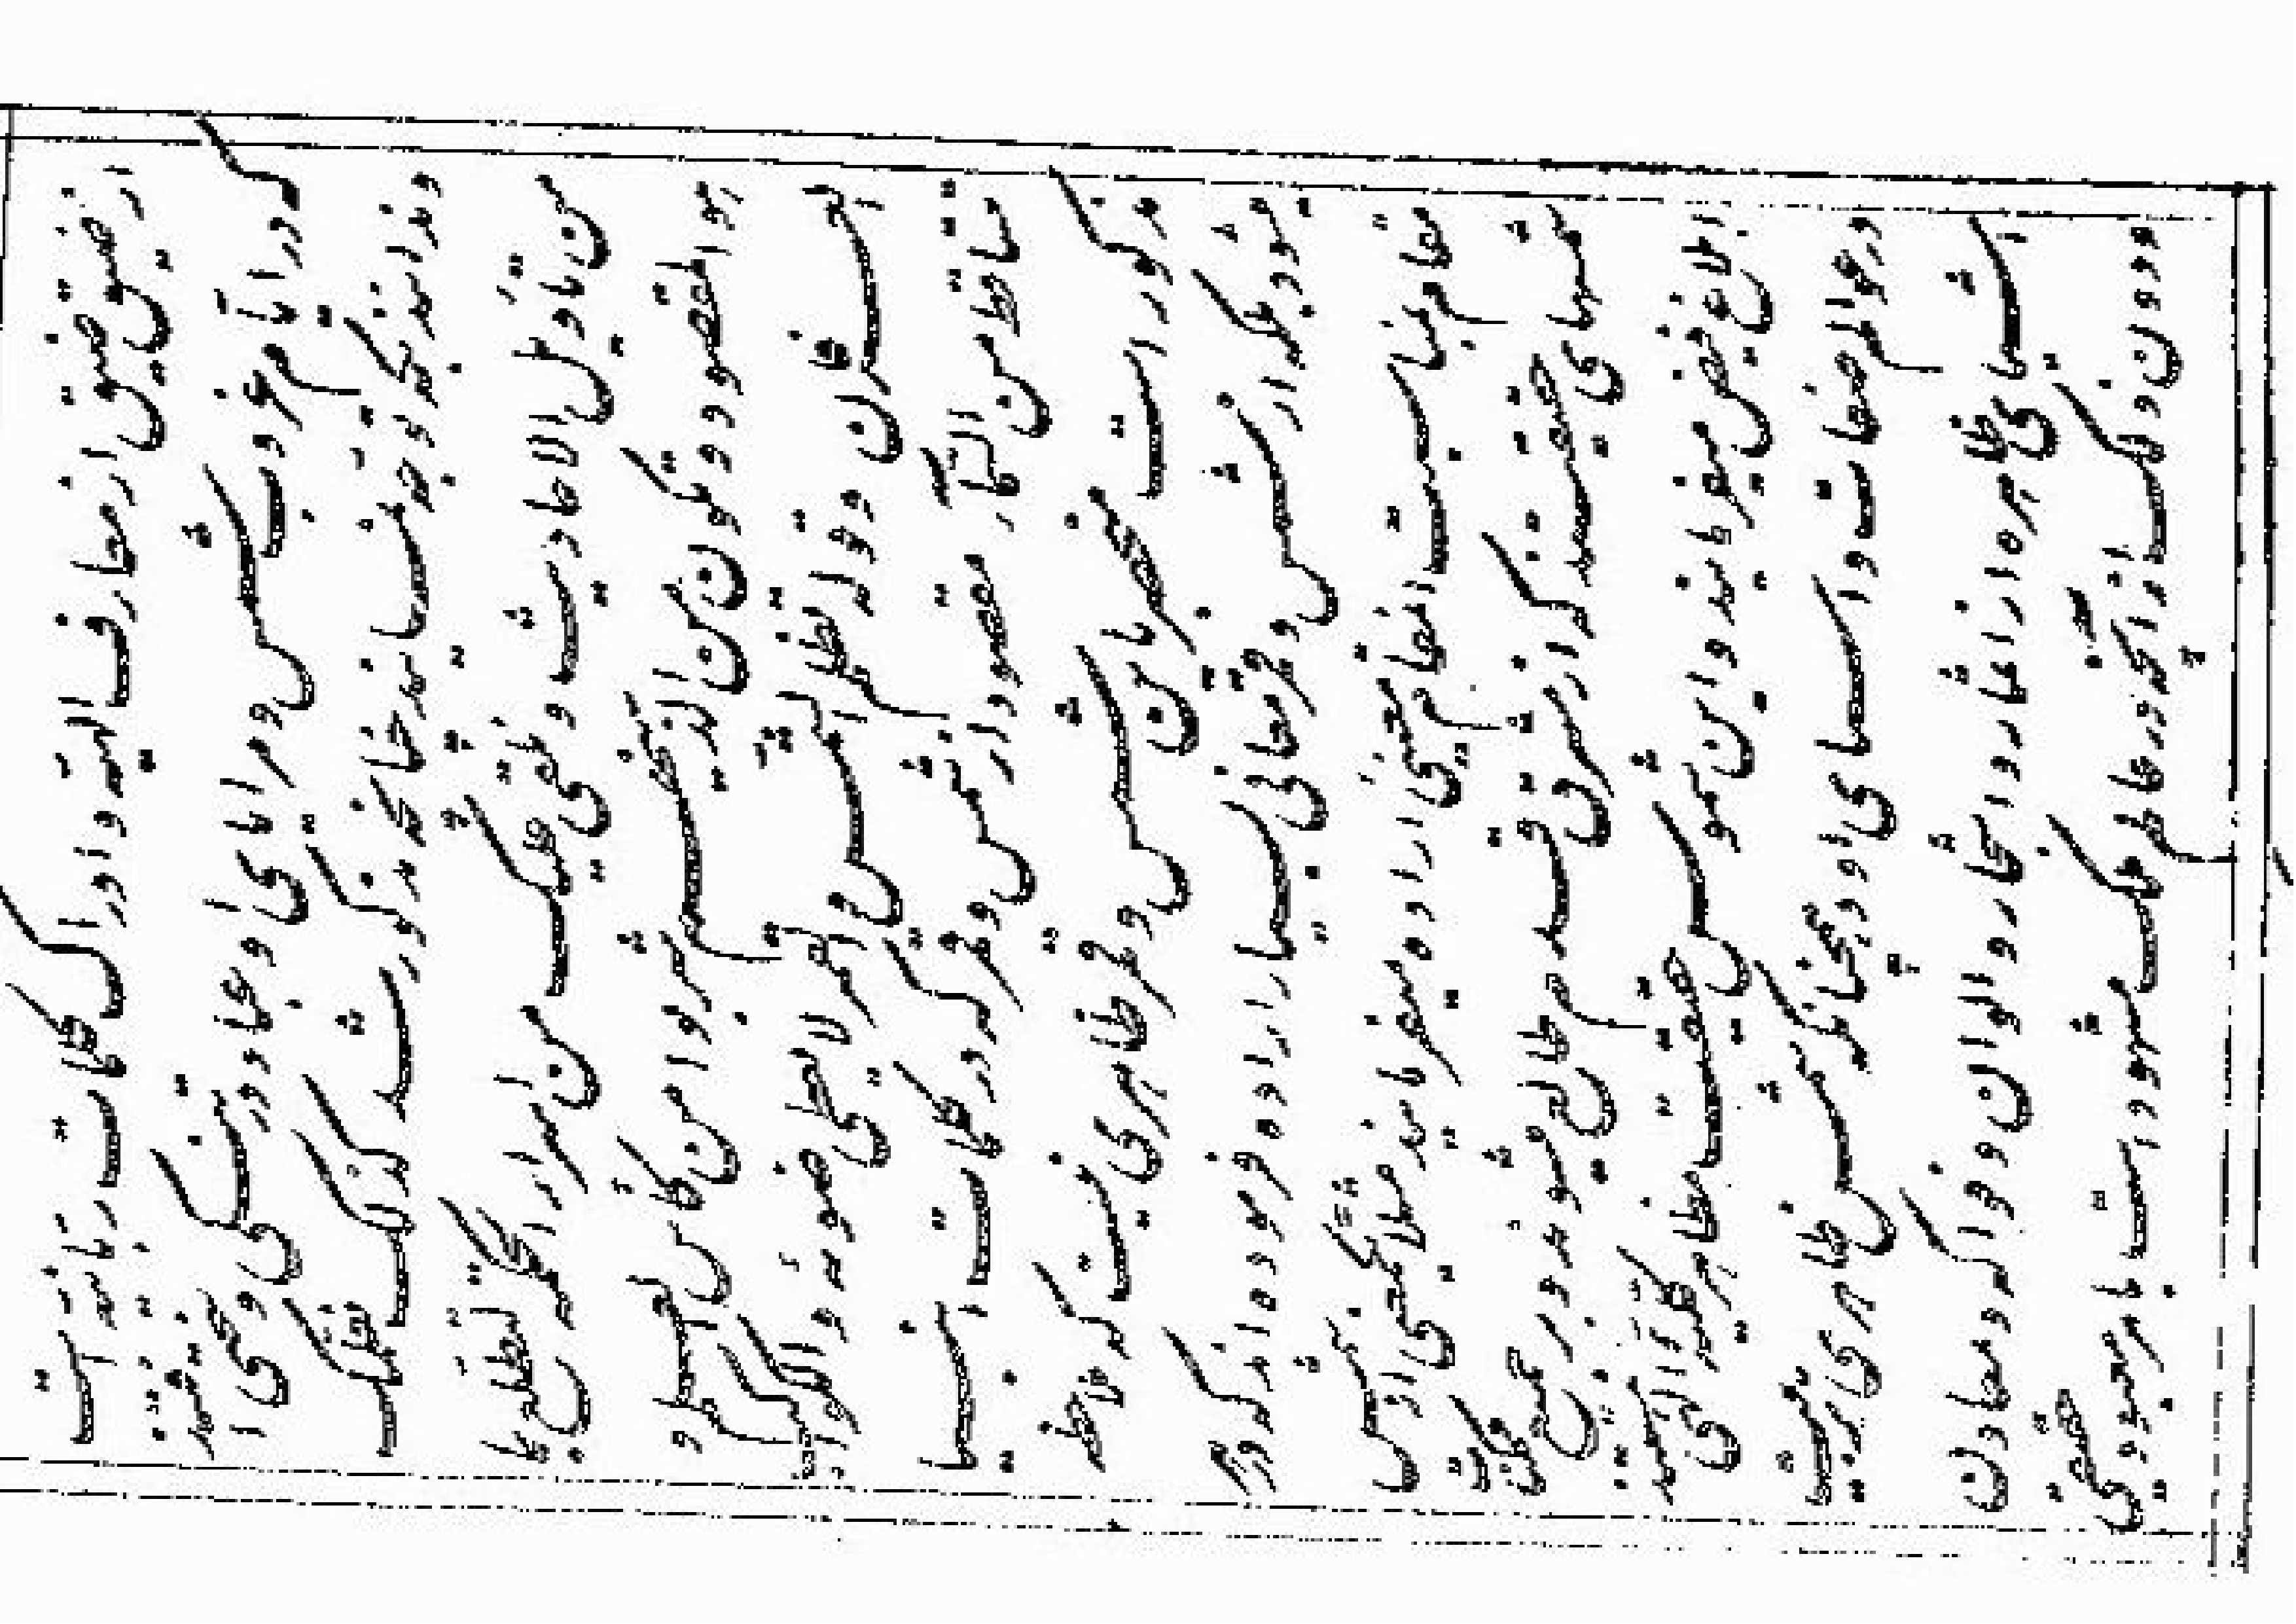 از ضیق ضیق از معارف الهیه و ادراک کلمات ربانیه است
که در ایام غروب شمس و مرایای او عباد در تنگی و سختی افتند
و ندانند بکه توجه نمایند چنانچه مذکور شد کذلک نعلمک
من تاویل الاحادیث و نلقی علیک من اسرار الحکمة لتطلع بما
هو المقصود و تکون من الذین هم شربوا من کأس العلم و
العرفان و قوله تظلم الشمس و القمر لا یعطی ضوئه و الکواکب
تتساقط من السماء مقصود از شمس و قمر که در کلمات انبیا
مذکور است منحصر باین شمس و قمر ظاهری نیست که ملاحظه
میشود بلکه از شمس و قمر معانی بسیار اراده فرموده اند که در هر
مقام بمناسبت انمقام معنی اراده میفرمایند مثلا یکمعنی از شمس
شمسهای حقیقتند که از مشرق قدم طالع میشوند و بر جمیع ممکنات
ابلاغ فیض میفرمایند و این شموس حقیقت مظاهر کلیه الهی هستند
در عوالم صفات و اسمای او و همچنانکه شمس ظاهری تربیت
اشیای ظاهره از اثمار و اشجار و الوان و فواکه و معادن
و دون ذلک از انچه در عالم ملک مشهود است بامر معبود حقیقی